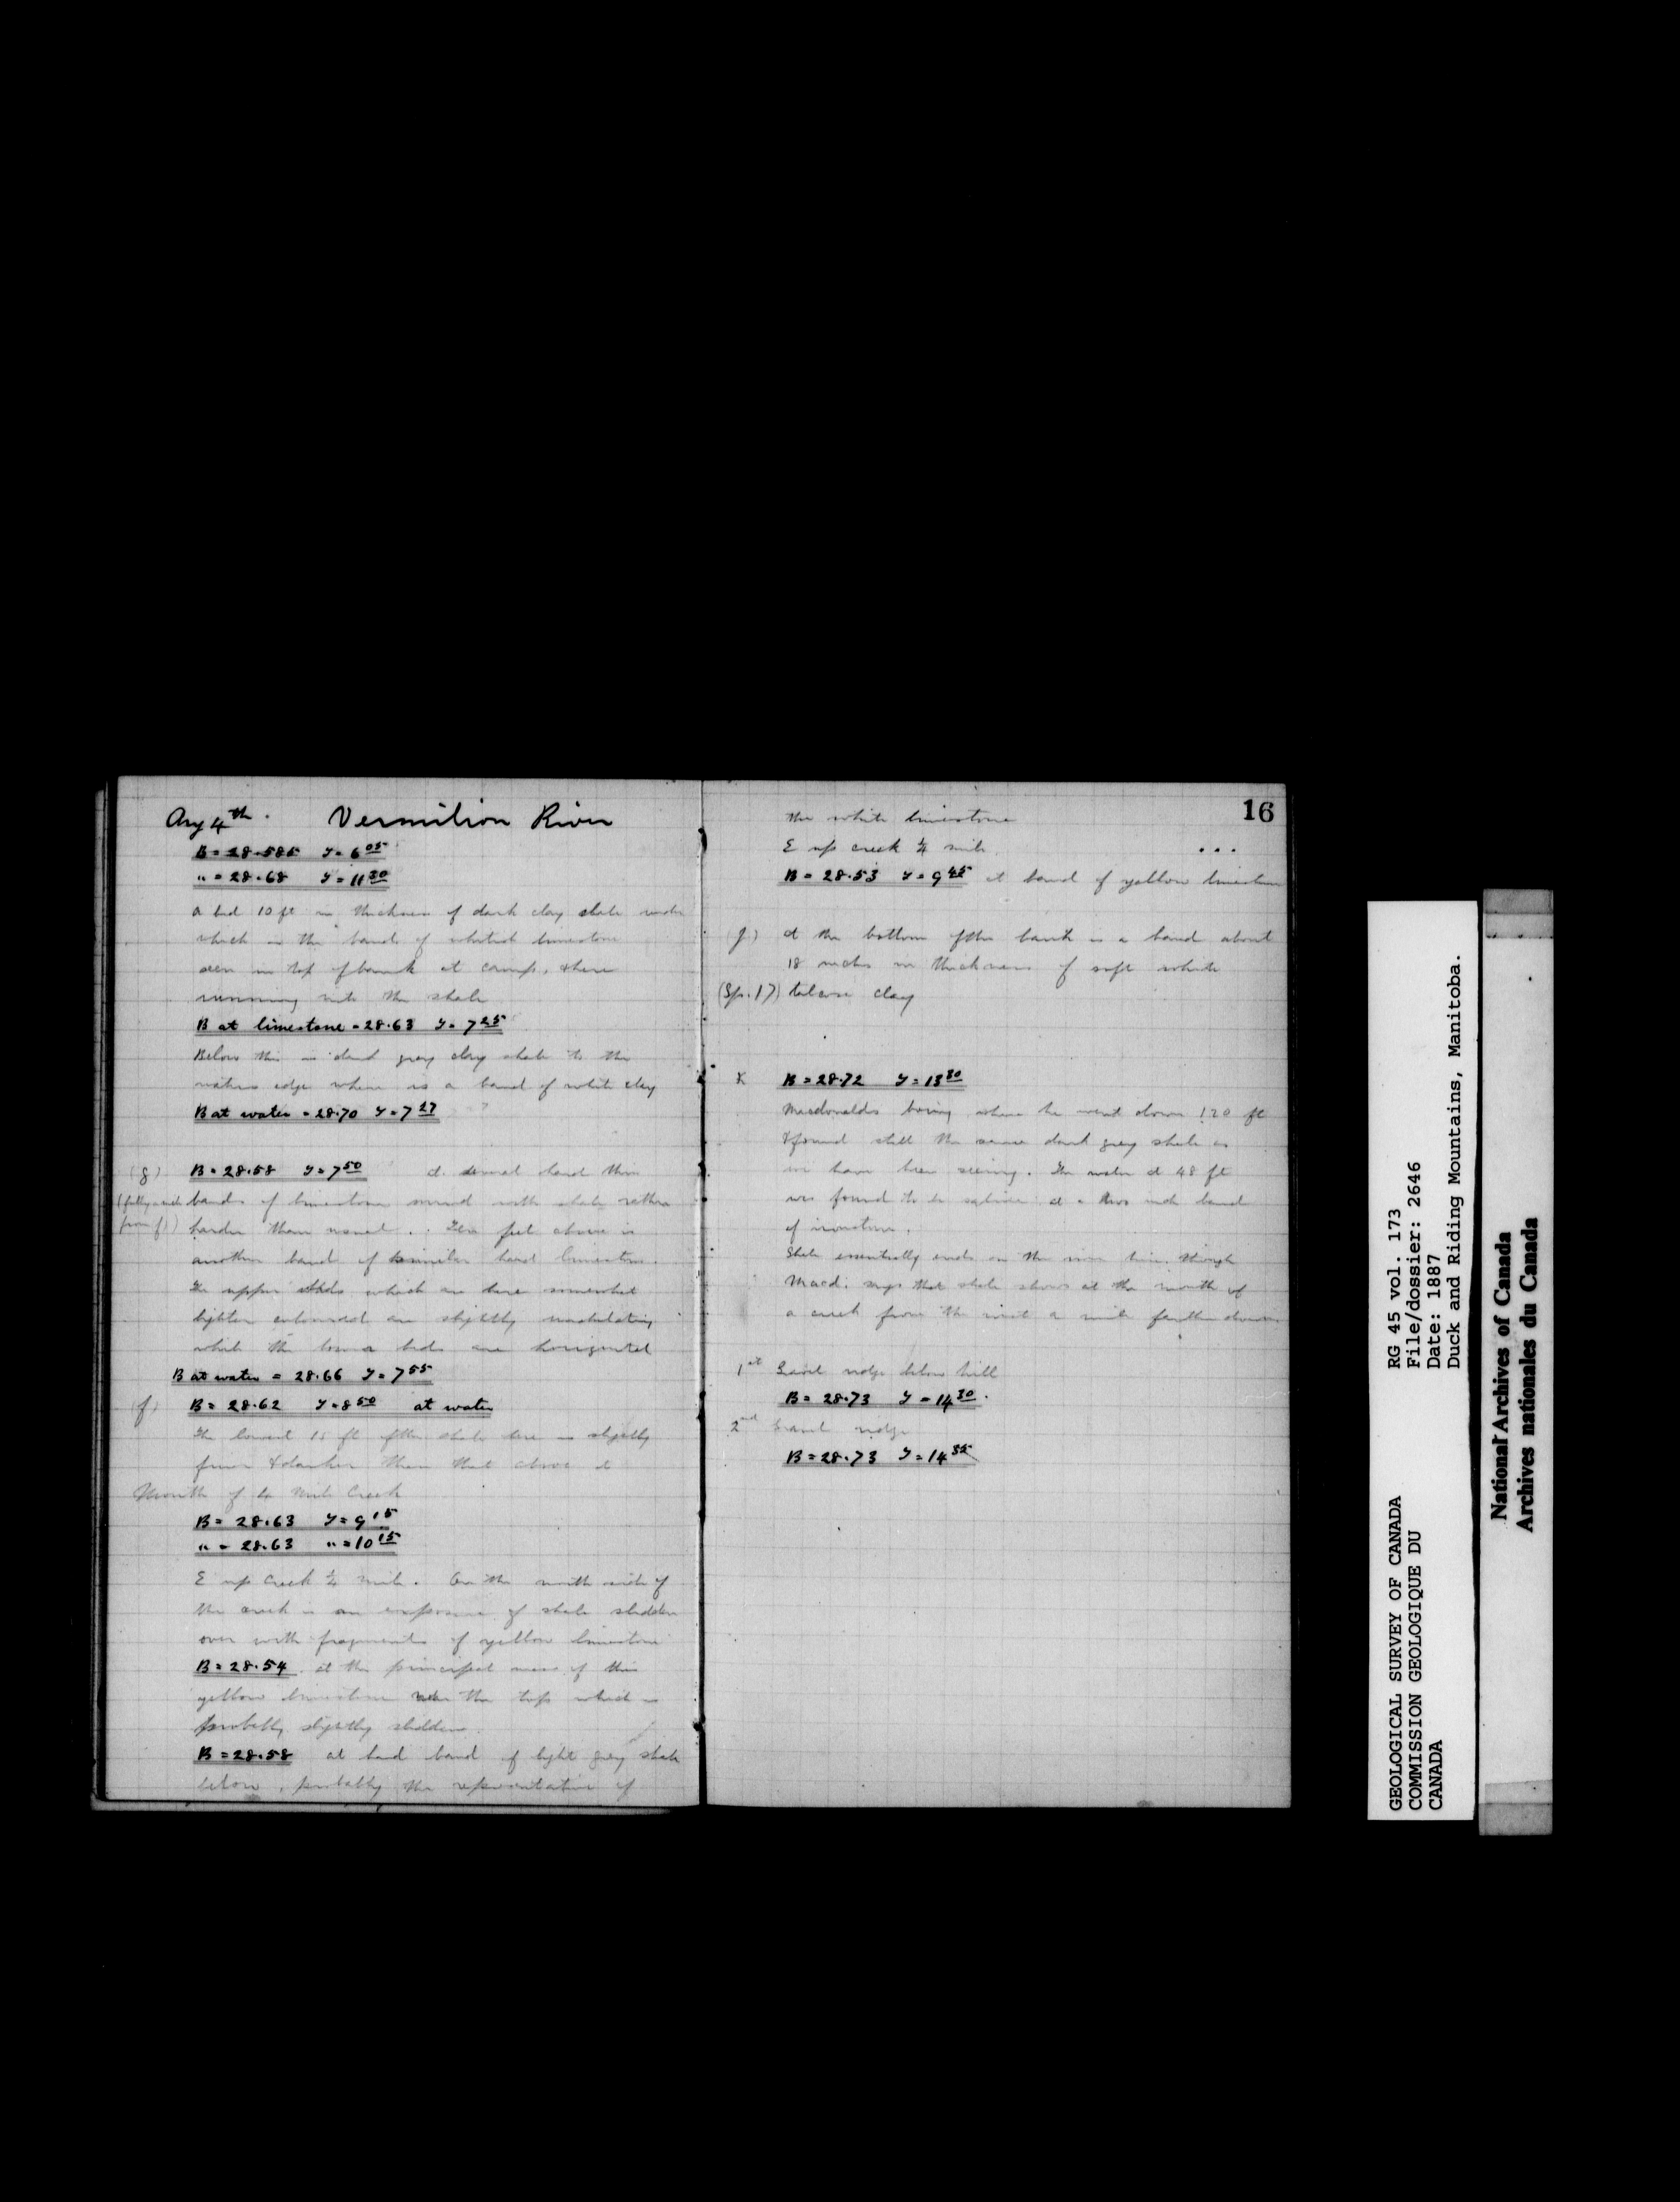 Aug 4th. Vermilion River
B = 28.585 T = 6 05
" = 28.68 T = 11 30
A bed 10 ft in thickness of dark clay shale under
which is the band of whitish limestone
seen in top of bank at camp, & here
running into the shale
B at limestone = 28.63 T = 7 25
Below this is dark grey clay shale to the
waters edge where is a band of white clay
B at water = 28.70 T = 7 27
(g) B = 28.58 T = 7 50 at several hard thin
bands of limestone mixed with shale rather
from f)) harder than usual. Ten feet above is
another band of similar hard limestone.
The upper beds which are here somewhat
lighter coloured are slightly undulating
while the lower beds are horizontal
B at water = 28.66 T = 7 55
(f) B = 28.62 T = 8 50 at water
The lowest 15 ft of the shale here is slightly
finer & darker than that above it
Mouth of 4 Mile Creek
B = 28.63 T = 9 15
" = 28.63 " = 10 15
E up Creek ¼ mile. On the north side of
the creek is an exposure of shale slidden
over with fragments of yellow limestone
B = 28.54 at the principal mass of this
yellow limestone near the top which is
probably slightly slidden.
B = 28.58 at hard band of light grey shale
below, probably the representative of
16
the white limestone
E up creek ¼ mile
B = 28.53 T = 9 45 at band of yellow limestone
(j) At the bottom of the bank is a band about
18 inches in thickness of soft white
(Sp. 17) talcose clay
K B = 28.72 T = 13 30
Macdonalds boring where he went down 120 ft
& found still the same dark grey shale as
we have been seeing. The water at 48 ft
was found to be saline at a two inch band
of ironstone.
Shale essentially ends on the river here, though
Macd. says that shale shows at the mouth of
a creek from the west a mile farther down
1st Gravel ridge below hill
B = 28.73 T = 14 30.
2nd Gravel ridge
B = 28.73 T = 14 35
GEOLOGICAL SURVEY OF CANADA
COMMISSION GEOLOGIQUE DU
CANADA
RG 45 vol. 173
File/dossier: 2646
Date: 1887
Duck and Riding Mountains, Manitoba.
National Archives of Canada
Archives nationales du Canada